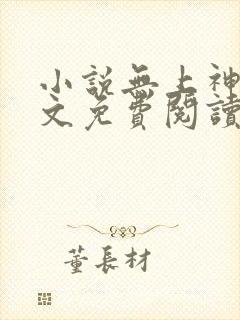 小説無上神
文免費閱讀
董長材